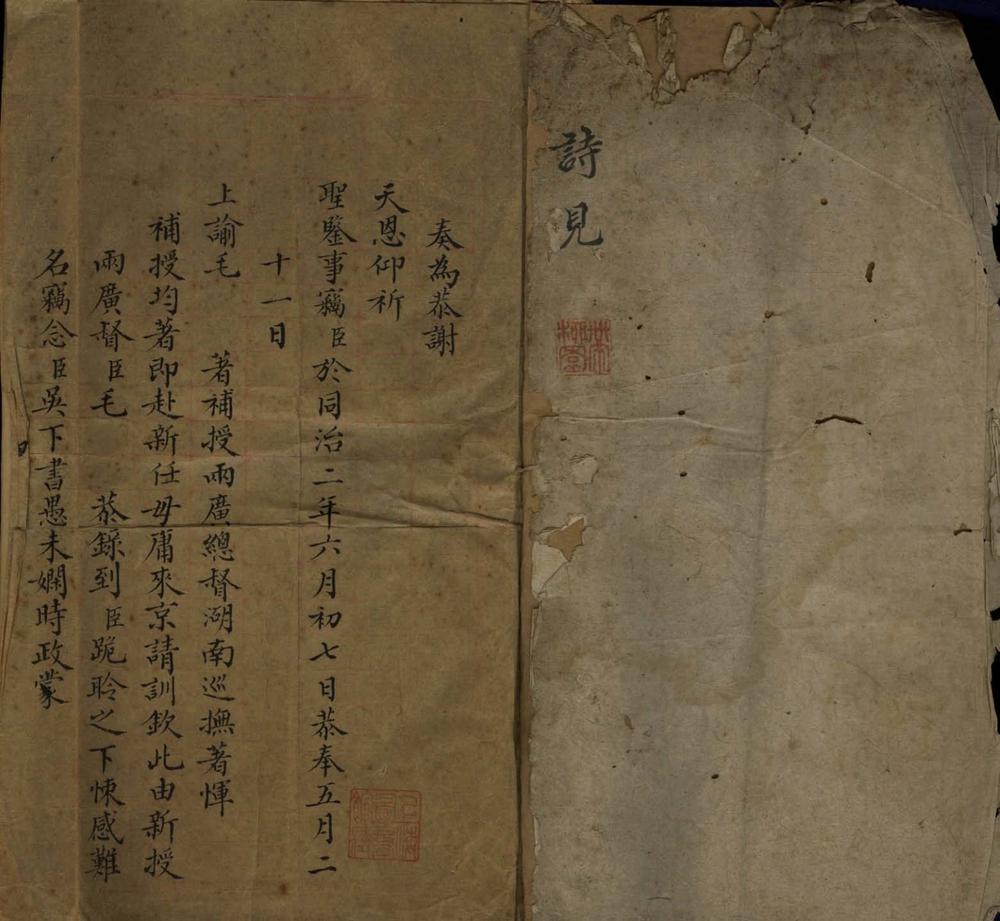 詩見
奏為恭謝
天恩仰祈
聖鑒事竊臣於同治二年六月初七日恭奉五月二
十一日
上諭毛　　著補授兩廣總督湖南巡撫著惲
補授均著即赴新任毋庸來京請訓欽此由新授
兩廣督臣毛　　恭錄到臣跪聆之下悚感難
名竊念臣吳下書愚未嫻時政蒙